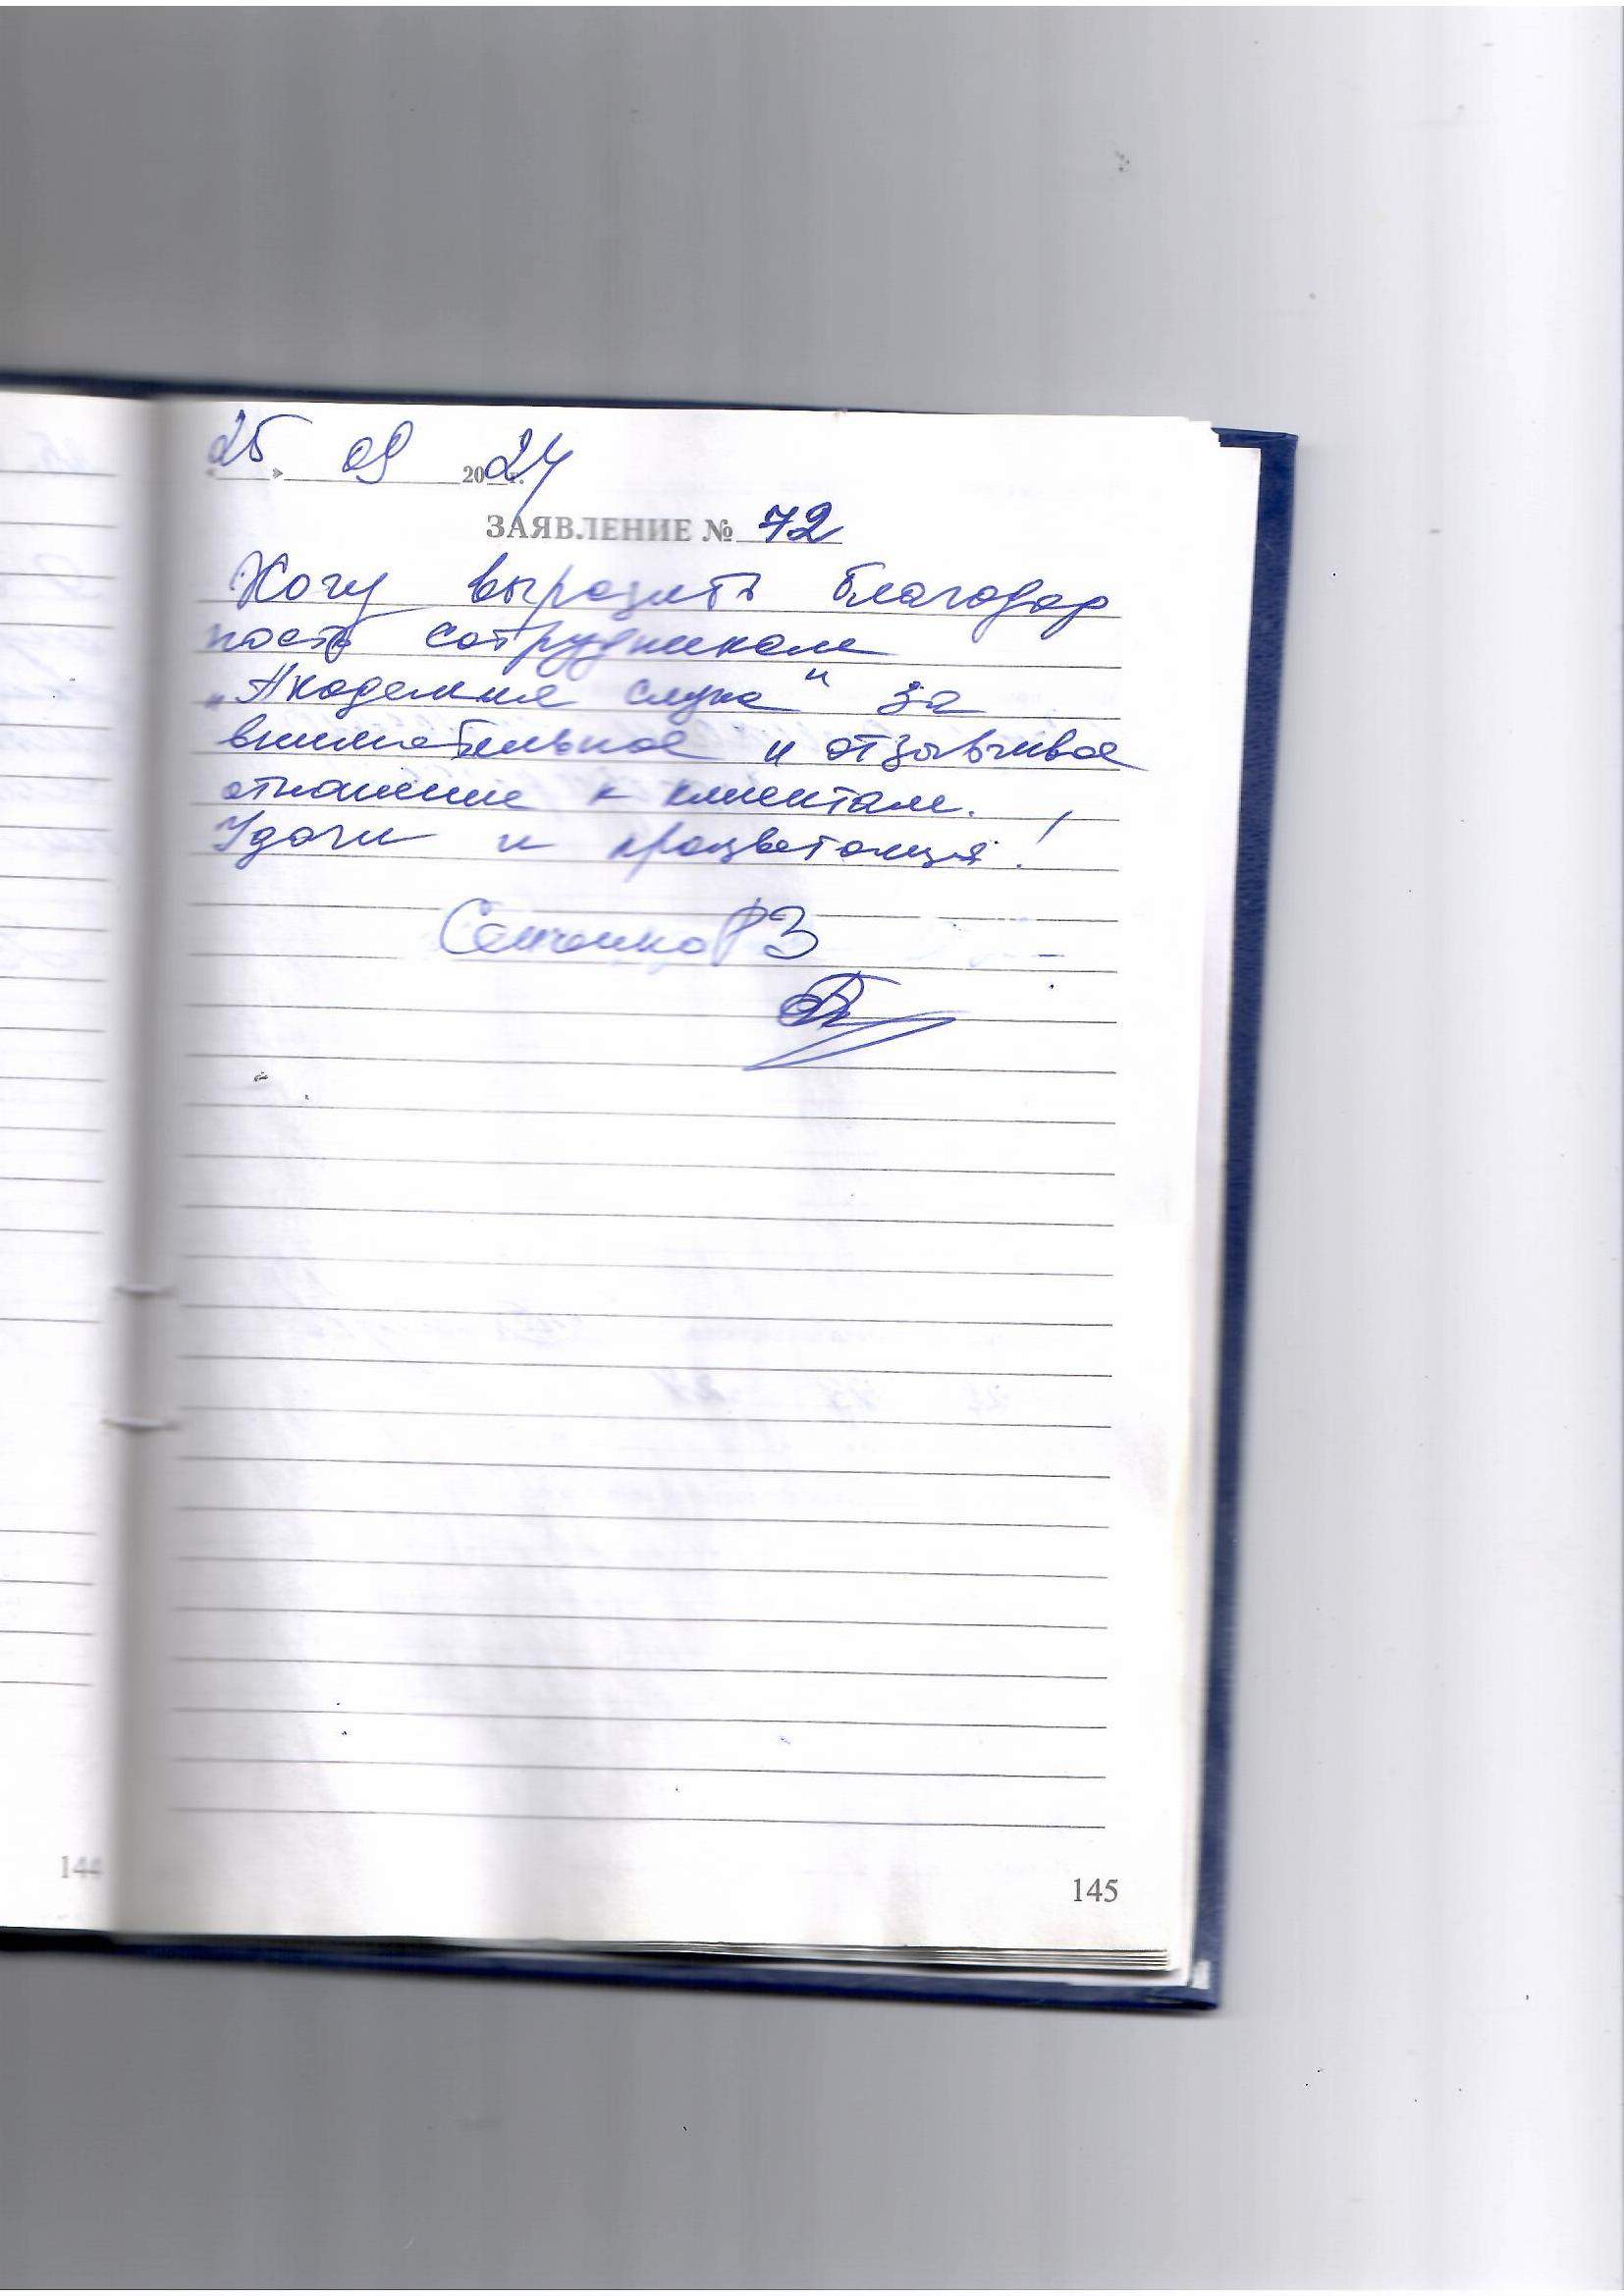 « 25 » 09 2024 г.
ЗАЯВЛЕНИЕ № 72
Хочу выразить благодар
ность сотрудникам
„Академия слуха" за
внимательное и отзывчивое
отношение к клиентам.
Удачи и процветания!
РЗ
144
145